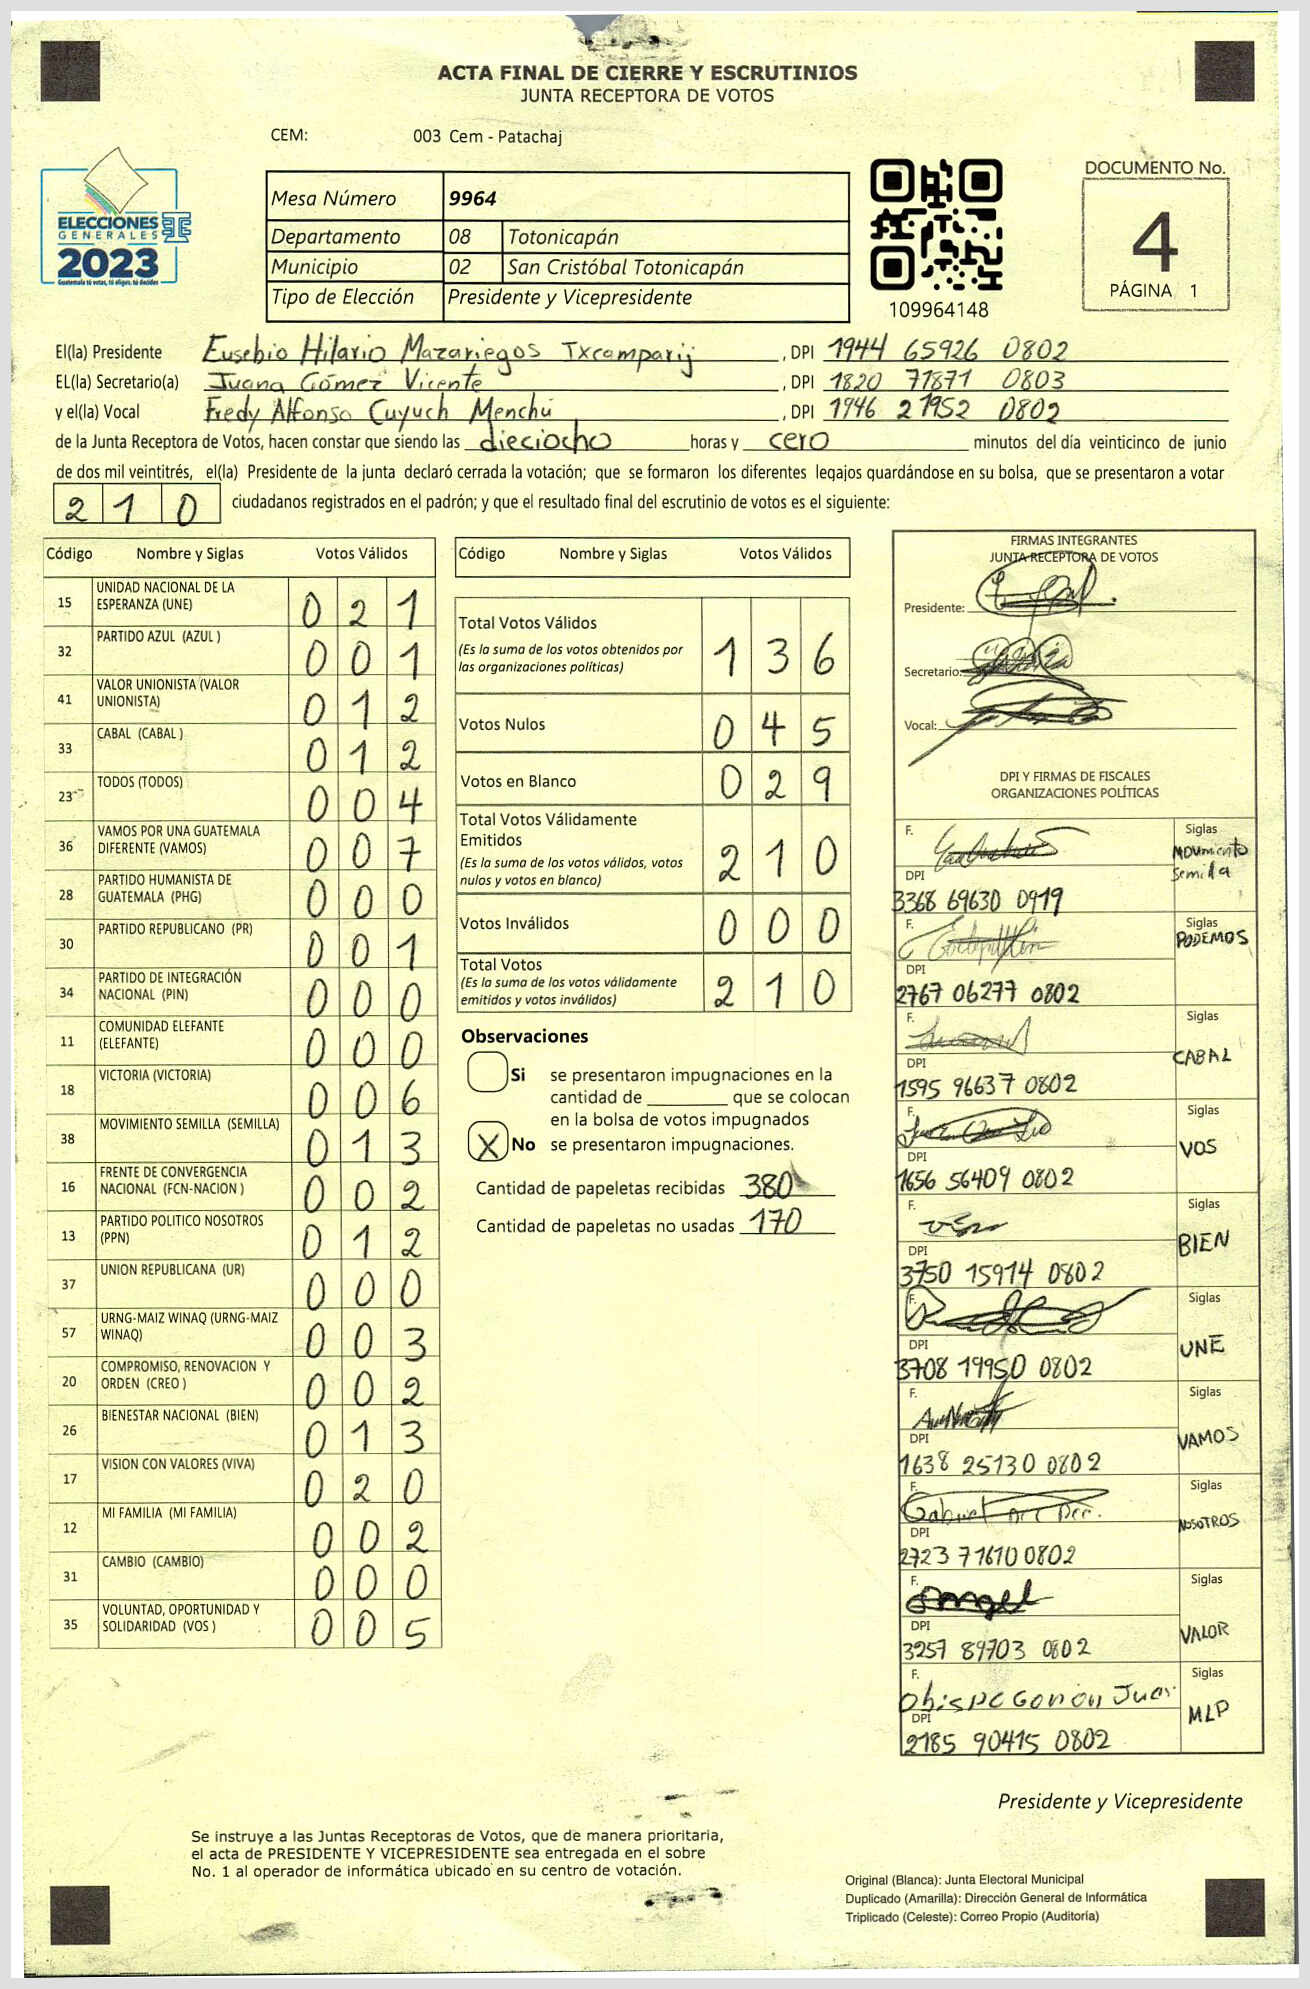 ACTA FINAL DE CIERRE Y ESCRUTINIOS
JUNTA RECEPTORA DE VOTOS
CEM: 003 Cem - Patachaj
DOCUMENTO No.
4
PÁGINA 1
ELECCIONES
GENERALES
2023
Guatemala tú votas, tú eliges, tú decides
Mesa Número 9964
Departamento 08 Totonicapán
Municipio 02 San Cristóbal Totonicapán
Tipo de Elección Presidente y Vicepresidente
109964148
El(la) Presidente Eusebio Hilario Mazariegos Txcamparij , DPI 1944 65926 0802
EL(la) Secretario(a) Juana Gómez Vicente , DPI 1820 71871 0803
y el(la) Vocal Fredy Alfonso Cuyuch Menchú , DPI 1946 21952 0802
de la Junta Receptora de Votos, hacen constar que siendo las dieciocho horas y cero minutos del día veinticinco de junio
de dos mil veintitrés, el(la) Presidente de la junta declaró cerrada la votación; que se formaron los diferentes legajos guardándose en su bolsa, que se presentaron a votar
210 ciudadanos registrados en el padrón; y que el resultado final del escrutinio de votos es el siguiente:
Código Nombre y Siglas Votos Válidos
15 UNIDAD NACIONAL DE LA ESPERANZA (UNE) 0 2 1
32 PARTIDO AZUL (AZUL ) 0 0 1
41 VALOR UNIONISTA (VALOR UNIONISTA) 0 1 2
33 CABAL (CABAL ) 0 1 2
23 TODOS (TODOS) 0 0 4
36 VAMOS POR UNA GUATEMALA DIFERENTE (VAMOS) 0 0 7
28 PARTIDO HUMANISTA DE GUATEMALA (PHG) 0 0 0
30 PARTIDO REPUBLICANO (PR) 0 0 1
34 PARTIDO DE INTEGRACIÓN NACIONAL (PIN) 0 0 0
11 COMUNIDAD ELEFANTE (ELEFANTE) 0 0 0
18 VICTORIA (VICTORIA) 0 0 6
38 MOVIMIENTO SEMILLA (SEMILLA) 0 1 3
16 FRENTE DE CONVERGENCIA NACIONAL (FCN-NACION ) 0 0 2
13 PARTIDO POLITICO NOSOTROS (PPN) 0 1 2
37 UNION REPUBLICANA (UR) 0 0 0
57 URNG-MAIZ WINAQ (URNG-MAIZ WINAQ) 0 0 3
20 COMPROMISO, RENOVACION Y ORDEN (CREO ) 0 0 2
26 BIENESTAR NACIONAL (BIEN) 0 1 3
17 VISION CON VALORES (VIVA) 0 2 0
12 MI FAMILIA (MI FAMILIA) 0 0 2
31 CAMBIO (CAMBIO) 0 0 0
35 VOLUNTAD, OPORTUNIDAD Y SOLIDARIDAD (VOS ) 0 0 5
Código Nombre y Siglas Votos Válidos
Total Votos Válidos 1 3 6
(Es la suma de los votos obtenidos por
las organizaciones políticas)
Votos Nulos 0 4 5
Votos en Blanco 0 2 9
Total Votos Válidamente
Emitidos 2 1 0
(Es la suma de los votos válidos, votos
nulos y votos en blanco)
Votos Inválidos 0 0 0
Total Votos 2 1 0
(Es la suma de los votos válidamente
emitidos y votos inválidos)
Observaciones
Si se presentaron impugnaciones en la
cantidad de ________ que se colocan
en la bolsa de votos impugnados
X No se presentaron impugnaciones.
Cantidad de papeletas recibidas 380
Cantidad de papeletas no usadas 170
FIRMAS INTEGRANTES
JUNTA RECEPTORA DE VOTOS
Presidente:
Secretario:
Vocal:
DPI Y FIRMAS DE FISCALES
ORGANIZACIONES POLÍTICAS
F. Siglas Movimiento Semilla
DPI 3368 69630 0919
F. Siglas PODEMOS
DPI 2767 06277 0802
F. Siglas CABAL
DPI 1595 96637 0802
F. Siglas VOS
DPI 1656 56409 0802
F. Siglas BIEN
DPI 3750 15914 0802
F. Siglas UNE
DPI 3708 19950 0802
F. Siglas VAMOS
DPI 1638 25130 0802
F. Siglas NOSOTROS
DPI 2723 71610 0802
F. Angel Siglas VALOR
DPI 3257 89703 0802
F. Siglas MLP
DPI 2185 90415 0802
Presidente y Vicepresidente
Se instruye a las Juntas Receptoras de Votos, que de manera prioritaria,
el acta de PRESIDENTE Y VICEPRESIDENTE sea entregada en el sobre
No. 1 al operador de informática ubicado en su centro de votación.
Original (Blanca): Junta Electoral Municipal
Duplicado (Amarilla): Dirección General de Informática
Triplicado (Celeste): Correo Propio (Auditoría)